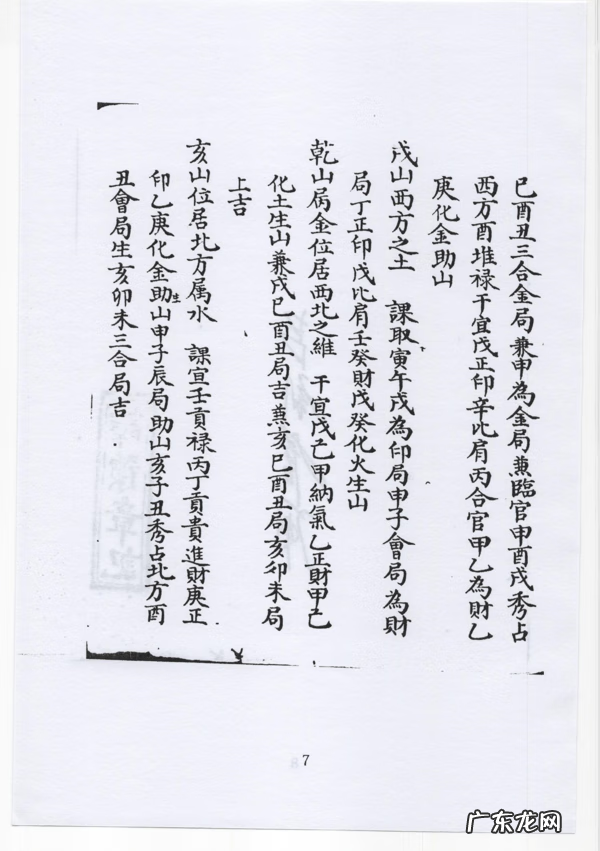 巳酉丑三合金局兼申為金局兼臨官申酉戌秀占
西方酉堆禄干宜戊正印辛比肩丙合官甲乙為財乙
庚化金助山
戌山西方之土　課取寅午戌為印局申子會局為財
局丁正印戊比肩壬癸財戊癸化火生山
乾山屬金位居西北之維　干宜戊己甲納氣乙正財甲己
化土生山兼戌巳酉丑局吉兼亥巳酉丑局亥卯未局
上吉
亥山位居北方属水　課宜壬貢禄丙丁貢貴進財庚正
印乙庚化金助生山申子辰局助山亥子丑秀占北方酉
丑會局生亥卯未三合局吉
7
广东龙网